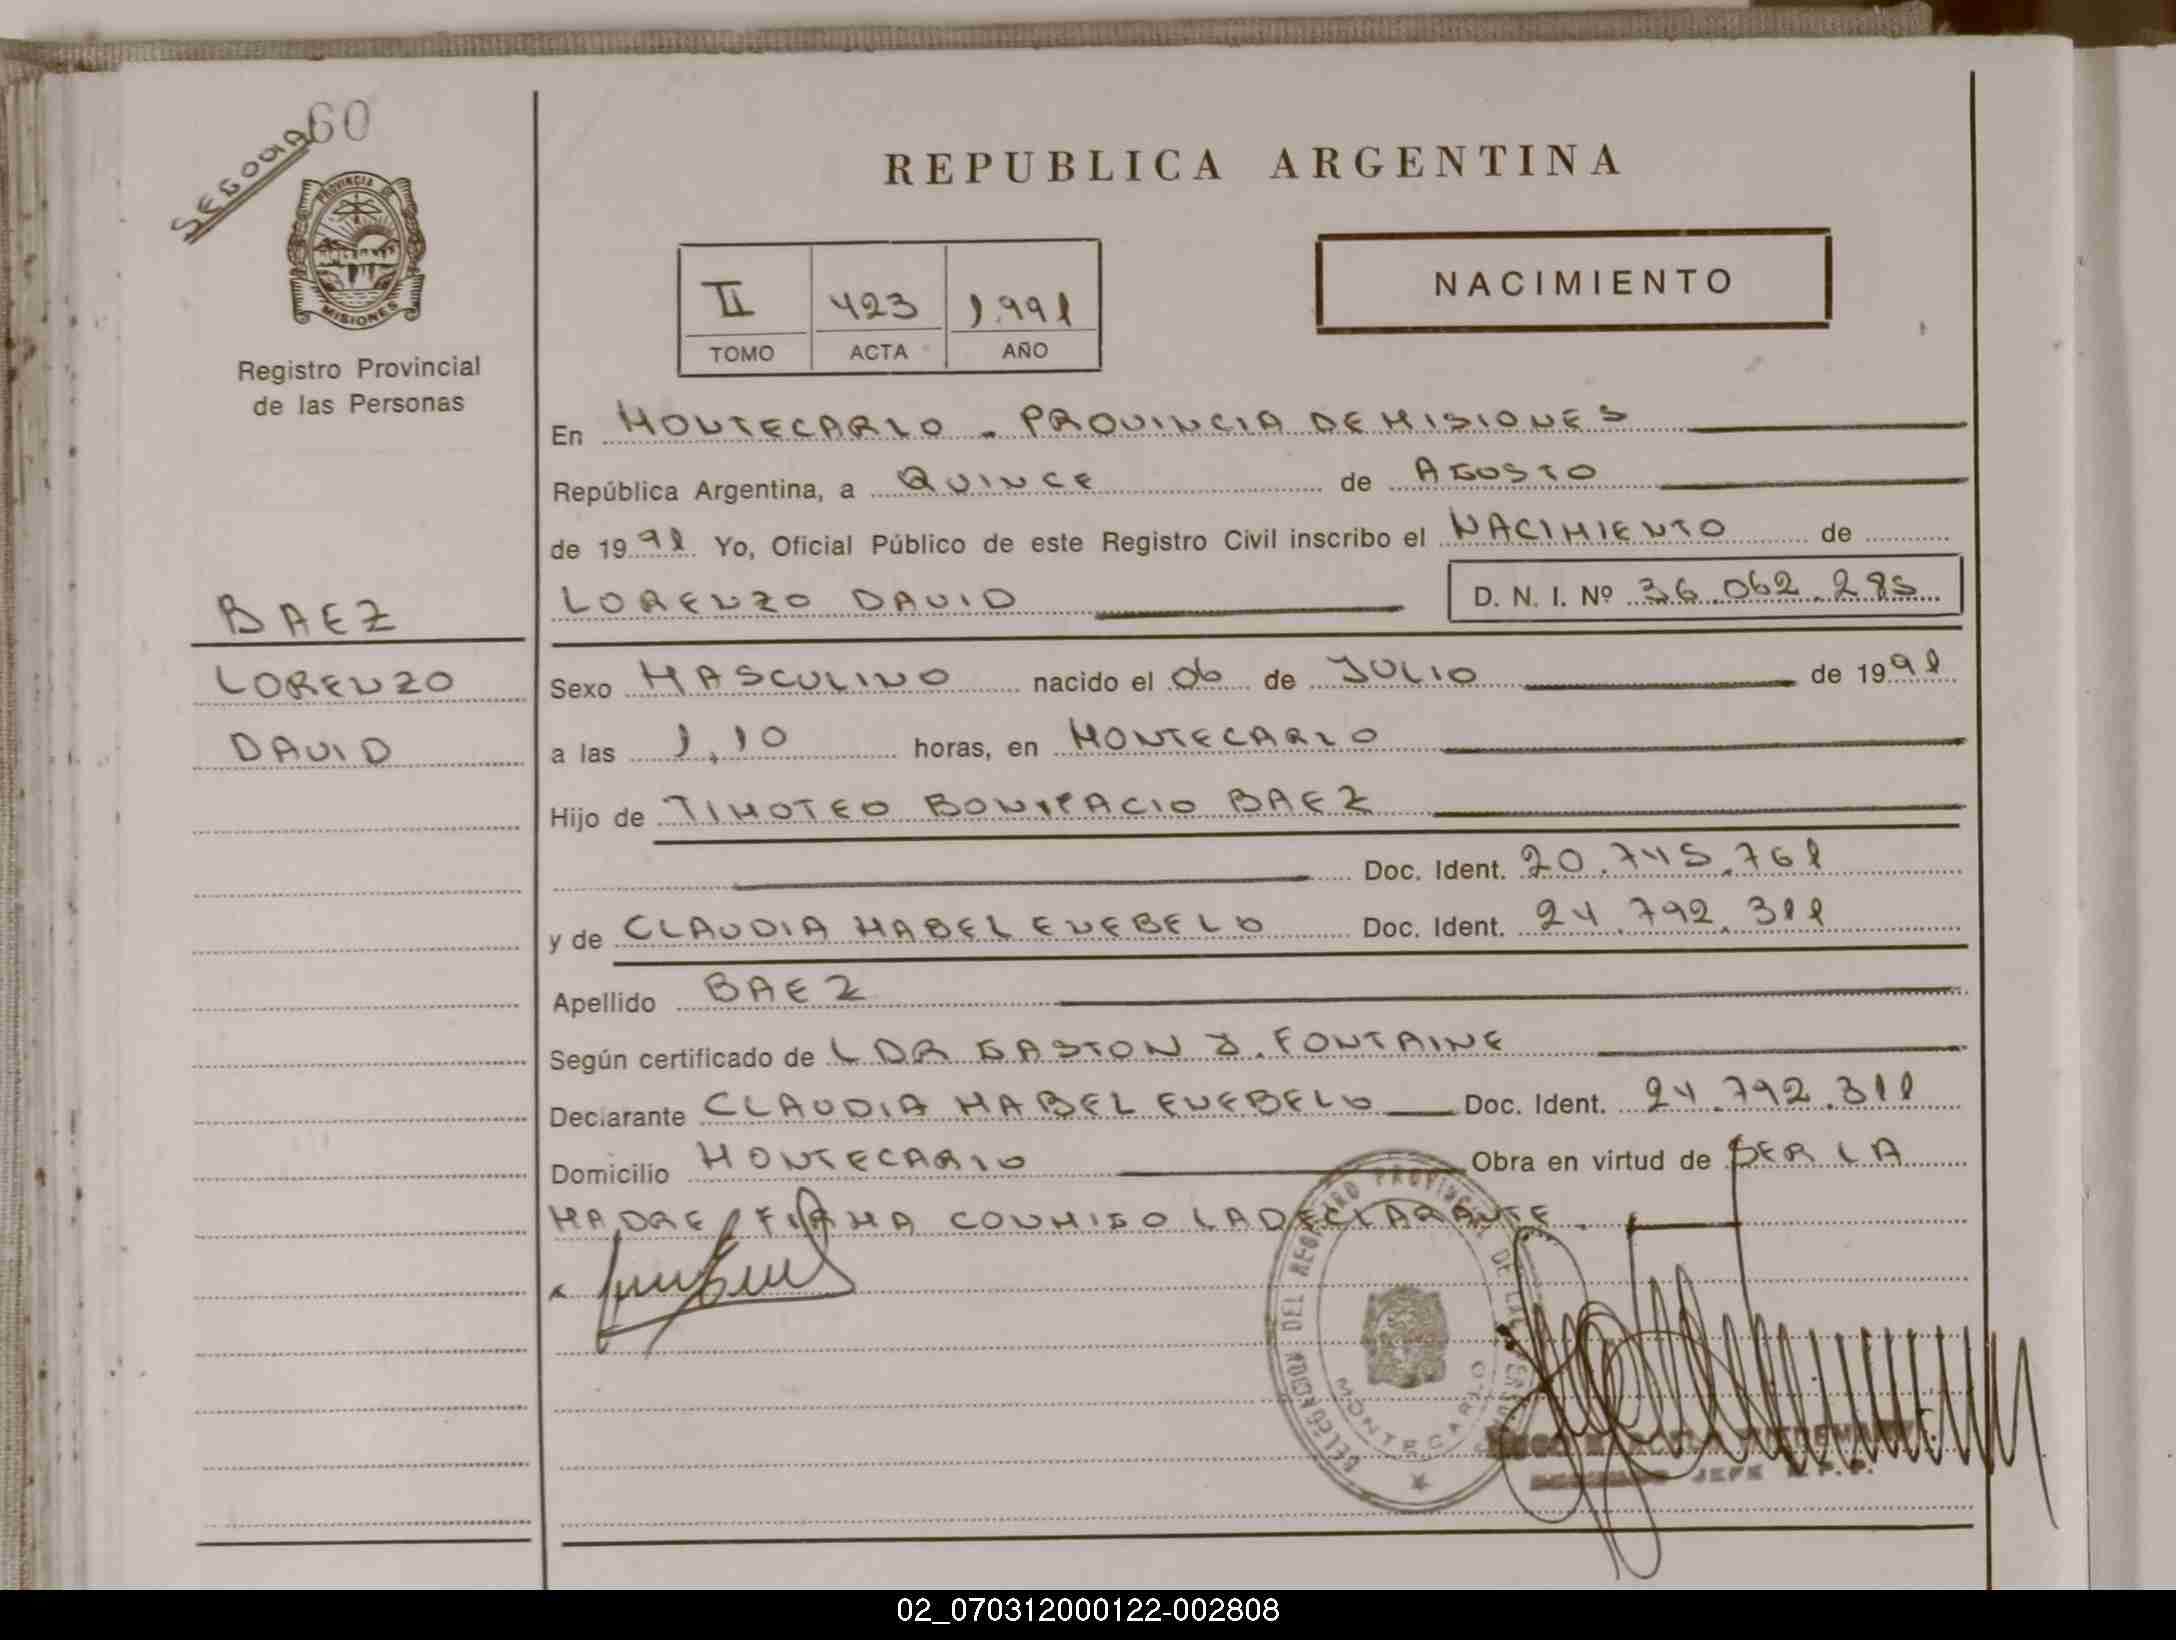 SEGOVIA 60
PROVINCIA DE
MISIONES
Registro Provincial
de las Personas
REPUBLICA ARGENTINA
II 423 1.991
TOMO ACTA AÑO
NACIMIENTO
En MONTECARLO - PROVINCIA DE MISIONES
República Argentina, a QUINCE de AGOSTO
de 1991 Yo, Oficial Público de este Registro Civil inscribo el NACIMIENTO de
LORENZO DAVID D. N. I. Nº 36.062.285
BAEZ
LORENZO
DAVID
Sexo MASCULINO nacido el 06 de JULIO de 1991
a las 1,10 horas, en MONTECARLO
Hijo de TIMOTEO BONIFACIO BAEZ
Doc. Ident. 20.745.761
y de CLAUDIA MABEL ENEBELO Doc. Ident. 24.792.311
Apellido BAEZ
Según certificado de L DR GASTON J. FONTAINE
Declarante CLAUDIA MABEL ENEBELO Doc. Ident. 24.792.311
Domicilio MONTECARLO Obra en virtud de SER LA
MADRE / FIRMA CONMIGO LA DECLARANTE.
DELEGACION DEL REGISTRO PROVINCIAL DE LAS PERSONAS
MONTECARLO
JEFE
02_070312000122-002808